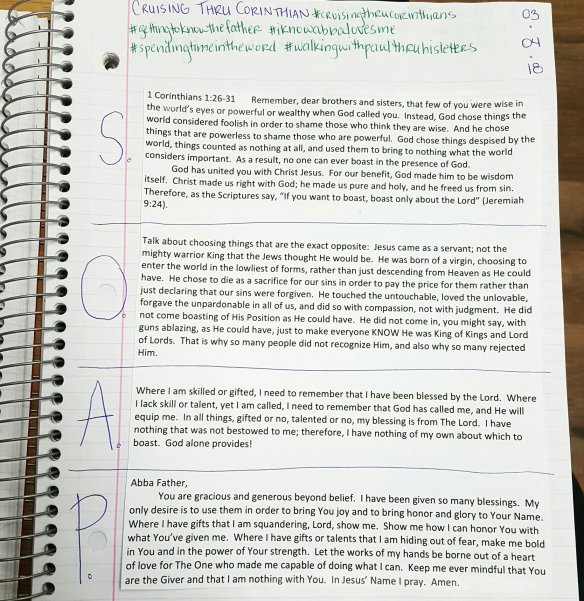 CRUISING THRU CORINTHIAN #cruisingthrucorinthians
#gettingtoknowthefather #iknowabbalovesme
#spendingtimeintheword #walkingwithpaulthruhisletters
03
.
04
.
18
S.
1 Corinthians 1:26-31 Remember, dear brothers and sisters, that few of you were wise in
the world's eyes or powerful or wealthy when God called you. Instead, God chose things the
world considered foolish in order to shame those who think they are wise. And he chose
things that are powerless to shame those who are powerful. God chose things despised by the
world, things counted as nothing at all, and used them to bring to nothing what the world
considers important. As a result, no one can ever boast in the presence of God.
God has united you with Christ Jesus. For our benefit, God made him to be wisdom
itself. Christ made us right with God; he made us pure and holy, and he freed us from sin.
Therefore, as the Scriptures say, "If you want to boast, boast only about the Lord" (Jeremiah
9:24).
O.
Talk about choosing things that are the exact opposite: Jesus came as a servant; not the
mighty warrior King that the Jews thought He would be. He was born of a virgin, choosing to
enter the world in the lowliest of forms, rather than just descending from Heaven as He could
have. He chose to die as a sacrifice for our sins in order to pay the price for them rather than
just declaring that our sins were forgiven. He touched the untouchable, loved the unlovable,
forgave the unpardonable in all of us, and did so with compassion, not with judgment. He did
not come boasting of His Position as He could have. He did not come in, you might say, with
guns ablazing, as He could have, just to make everyone KNOW He was King of Kings and Lord
of Lords. That is why so many people did not recognize Him, and also why so many rejected
Him.
A.
Where I am skilled or gifted, I need to remember that I have been blessed by the Lord. Where
I lack skill or talent, yet I am called, I need to remember that God has called me, and He will
equip me. In all things, gifted or no, talented or no, my blessing is from The Lord. I have
nothing that was not bestowed to me; therefore, I have nothing of my own about which to
boast. God alone provides!
P.
Abba Father,
You are gracious and generous beyond belief. I have been given so many blessings. My
only desire is to use them in order to bring You joy and to bring honor and glory to Your Name.
Where I have gifts that I am squandering, Lord, show me. Show me how I can honor You with
what You've given me. Where I have gifts or talents that I am hiding out of fear, make me bold
in You and in the power of Your strength. Let the works of my hands be borne out of a heart
of love for The One who made me capable of doing what I can. Keep me ever mindful that You
are the Giver and that I am nothing with You. In Jesus' Name I pray. Amen.